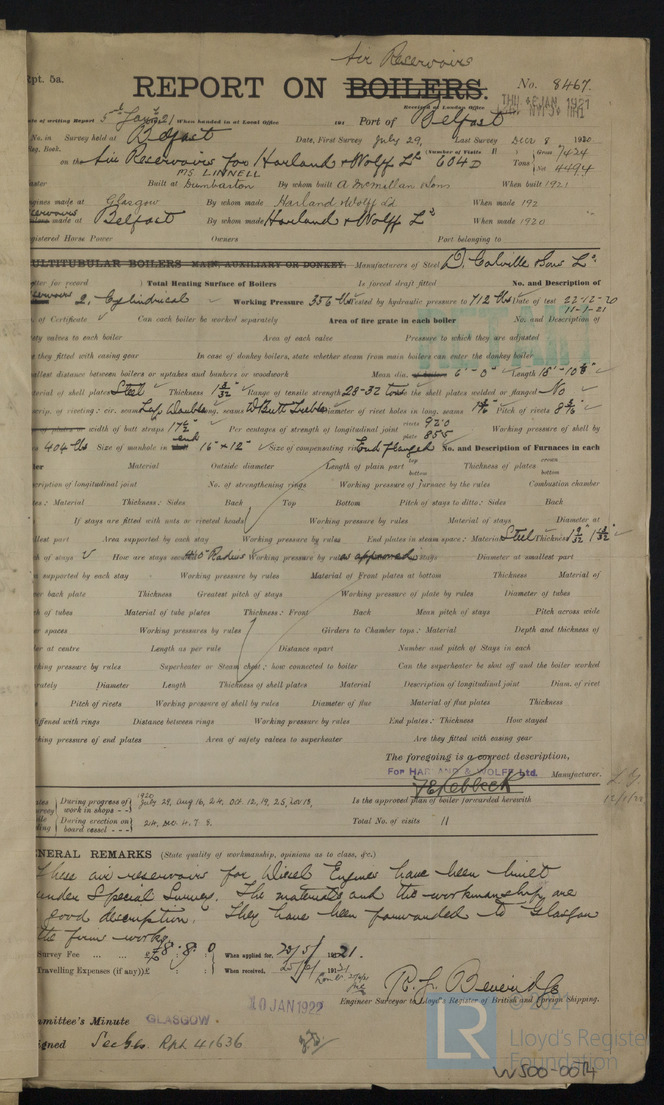 Air Reservoirs
Rpt. 5a.
REPORT ON BOILERS.
No. 8467.
THU. 6 JAN 1921
Received at London Office
Date of writing Report 5th Jan 21 When handed in at Local Office 192 Port of Belfast
No. in Survey held at Belfast Date, First Survey July 29, Last Survey Dec 8 1920
Reg. Book. (Number of Visits 11) Gross 7424
on the Air Reservoirs for Harland & Wolff Ld 604D Tons Net 4494
MS. LINNELL
Master Built at Dumbarton By whom built A McMillan & Sons When built 1921
Engines made at Glasgow By whom made Harland & Wolff Ld When made 192
Reservoirs made at Belfast By whom made Harland & Wolff Ld When made 1920
Registered Horse Power Owners Port belonging to
MULTITUBULAR BOILERS MAIN, AUXILIARY OR DONKEY. Manufacturers of Steel D. Colville & Sons Ld
Letter for record Total Heating Surface of Boilers Is forced draft fitted No. and Description of
Reservoirs 2, Cylindrical Working Pressure 356 lbs Tested by hydraulic pressure to 712 lbs Date of test 22-12-20
11-1-21
No. of Certificate Can each boiler be worked separately Area of fire grate in each boiler No. and Description of
safety valves to each boiler Area of each valve Pressure to which they are adjusted
Are they fitted with easing gear In case of donkey boilers, state whether steam from main boilers can enter the donkey boiler
Smallest distance between boilers or uptakes and bunkers or woodwork Mean dia. of boilers 6'-0" Length
Material of shell plates Steel Thickness 1 5/32" Range of tensile strength 28-32 tons Are the shell plates welded or flanged No
Descrip. of riveting: cir. seams Lap Double long. seams Diameter of rivet holes in long. seams Pitch of rivets
Lap of plates or width of butt straps Per centages of strength of longitudinal joint rivets 92.0 plate 85.5 Working pressure of shell by
rules 404 lbs Size of manhole in end 16" x 12" Size of compensating ring End flanged No. and Description of Furnaces in each
boiler Material Outside diameter Length of plain part top bottom Thickness of plates crown bottom
Description of longitudinal joint No. of strengthening rings Working pressure of furnace by the rules Combustion chamber
plates: Material Thickness: Sides Back Top Bottom Pitch of stays to ditto: Sides Back
If stays are fitted with nuts or riveted heads Working pressure by rules Material of stays Diameter at
smallest part Area supported by each stay Working pressure by rules End plates in steam space: Material Steel Thickness
Pitch of stays How are stays secured Radius Working pressure by rules as approved stays Diameter at smallest part
Area supported by each stay Working pressure by rules Material of Front plates at bottom Thickness Material of
Lower back plate Thickness Greatest pitch of stays Working pressure of plate by rules Diameter of tubes
Pitch of tubes Material of tube plates Thickness: Front Back Mean pitch of stays Pitch across wide
water spaces Working pressures by rules Girders to Chamber tops: Material Depth and thickness of
girder at centre Length as per rule Distance apart Number and pitch of Stays in each
Working pressure by rules Superheater or Steam chest; how connected to boiler Can the superheater be shut off and the boiler worked
separately Diameter Length Thickness of shell plates Material Description of longitudinal joint Diam. of rivet
holes Pitch of rivets Working pressure of shell by rules Diameter of flue Material of flue plates Thickness
If stiffened with rings Distance between rings Working pressure by rules End plates: Thickness How stayed
Working pressure of end plates Area of safety valves to superheater Are they fitted with easing gear
The foregoing is a correct description,
For HARLAND & WOLFF Ltd. Manufacturer.
F E Rebbeck
12/1/22
Dates of Survey while building
During progress of work in shops - - 1920 July 29, Aug 16, 24, Oct. 12, 19, 25, Nov 18, Is the approved plan of boiler forwarded herewith
During erection on board vessel - - - 24, Dec 4. 7. 8. Total No. of visits 11
GENERAL REMARKS (State quality of workmanship, opinions as to class, &c.)
These air reservoirs for Diesel Engines have been built
under Special Survey. The materials and the workmanship are
good description. They have been forwarded to Glasgow
the firms works.
Survey Fee ... ... £ 8 : 8 : 0 When applied for, 23/5/1921.
Travelling Expenses (if any) £ : : When received, 25/ 1921
R. J. Beveridge
Engineer Surveyor to Lloyd's Register of British and Foreign Shipping.
Committee's Minute GLASGOW. 10 JAN 1922
Assigned See Gls. Rpt. 41636
LR
© 2021
Lloyd's Register
Foundation
W500-0074